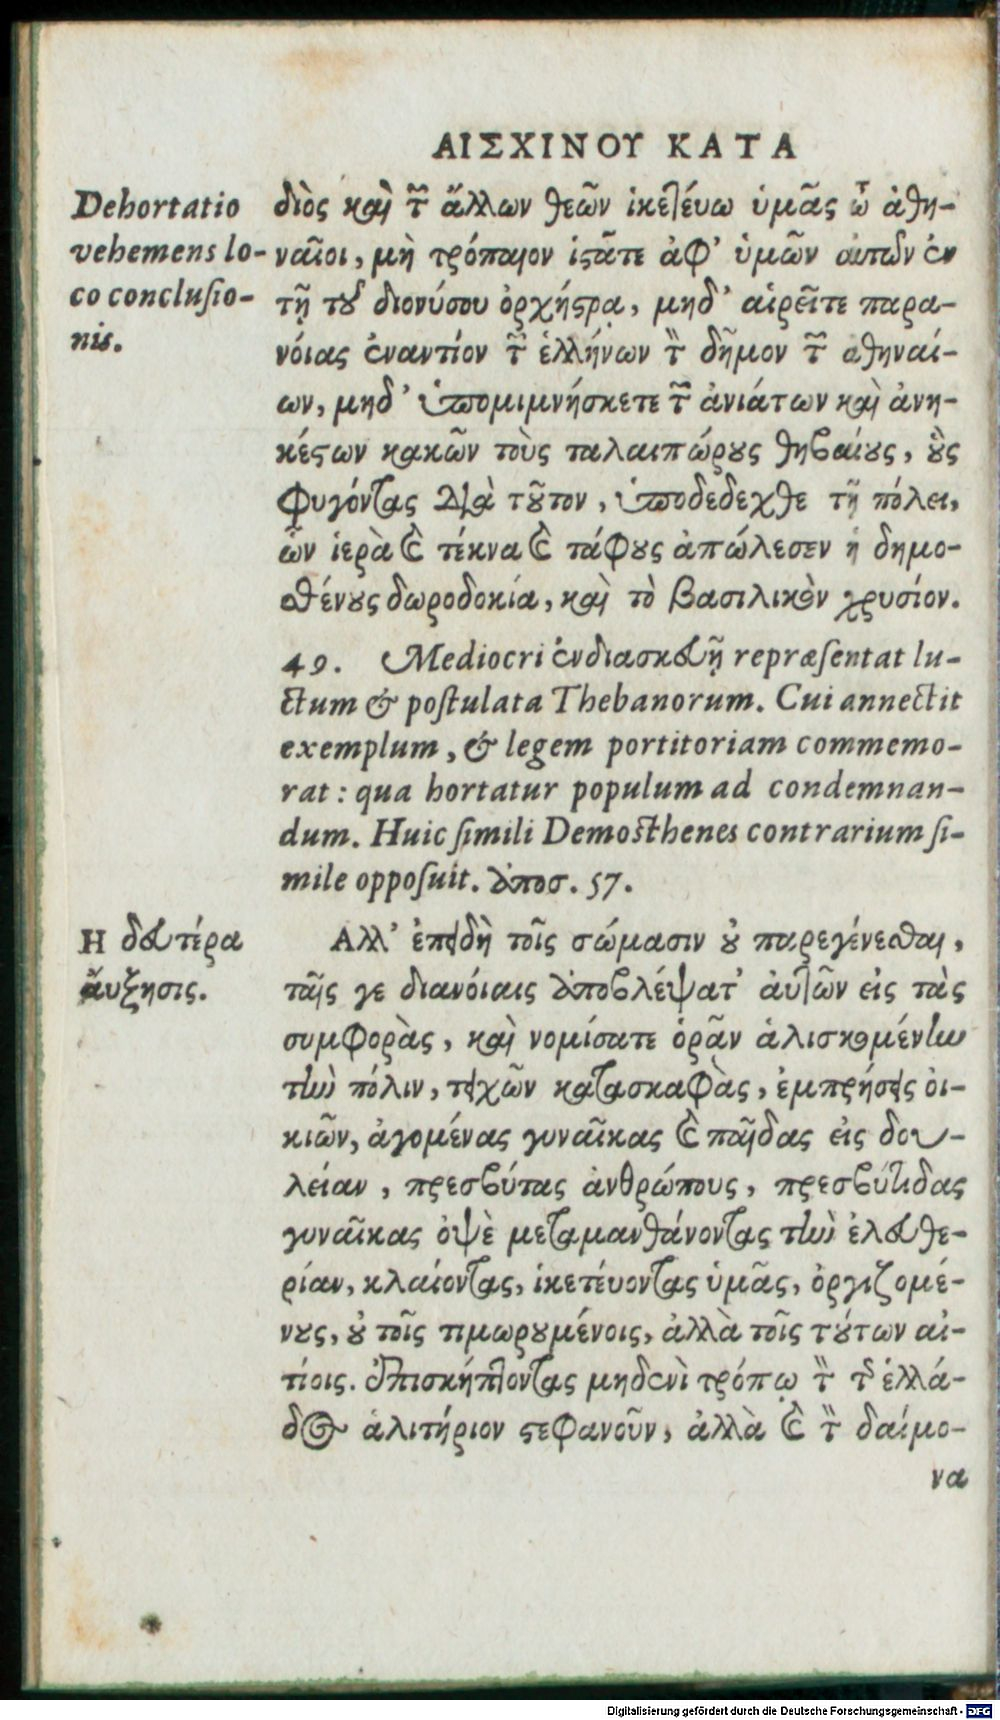 ΑΙΣΧΙΝΟΥ ΚΑΤΑ
Dehortatio
vehemens lo-
co conclusio-
nis.
διὸς καὶ τῶν ἄλλων θεῶν ἱκετεύω ὑμᾶς ὦ ἀθη-
ναῖοι, μὴ τρόπαιον ἱστᾶτε ἀφ' ὑμῶν αὐτῶν ἐν
τῇ τοῦ διονύσου ὀρχήστρᾳ, μηδ' αἱρεῖτε παρα-
νόιας ἐναντίον τῶν ἑλλήνων τὸν δῆμον τῶν ἀθηναί-
ων, μηδ' ὑπομιμνήσκετε τῶν ἀνιάτων καὶ ἀνη-
κέστων κακῶν τοὺς ταλαιπώρους θηβαίους, οὓς
φυγόντας διὰ τοῦτον, ὑποδεδεχθε τῇ πόλει,
ὧν ἱερὰ καὶ τέκνα καὶ τάφους ἀπώλεσεν ἡ δημο-
σθένους δωροδοκία, καὶ τὸ βασιλικὸν χρυσίον.
49. Mediocri ἐνδιασκευῇ repræsentat lu-
ctum & postulata Thebanorum. Cui annectit
exemplum, & legem portitoriam commemo-
rat: qua hortatur populum ad condemnan-
dum. Huic simili Demosthenes contrarium si-
mile opposuit. ἀποσ. 57.
Η δευτέρα
ἄυξησις.
Αλλ' ἐπειδὴ τοῖς σώμασιν οὐ παρεγένεσθαι,
ταῖς γε διανόιαις ἀποβλέψατ' ἀυτῶν εἰς τὰς
συμφορὰς, καὶ νομίσατε ὁρᾶν ἁλισκομένην
τὴν πόλιν, τειχῶν κατασκαφὰς, ἐμπρήσεις οἰ-
κιῶν, ἀγομένας γυναῖκας καὶ παῖδας εἰς δου-
λείαν, πρεσβύτας ἀνθρώπους, πρεσβύτιδας
γυναῖκας ὀψὲ μεταμανθάνοντας τὴν ἐλευθε-
ρίαν, κλαίοντας, ἱκετέυοντας ὑμᾶς, ὀργιζομέ-
νους, οὐ τοῖς τιμωρουμένοις, ἀλλὰ τοῖς τούτων αἰ-
τίοις. ἐπισκήπτοντας μηδενὶ τρόπῳ τὸν τῆς ἑλλά-
δος ἀλιτήριον στεφανοῦν, ἀλλὰ καὶ τὸν δαίμο-
να
Digitalisierung gefördert durch die Deutsche Forschungsgemeinschaft - DFG